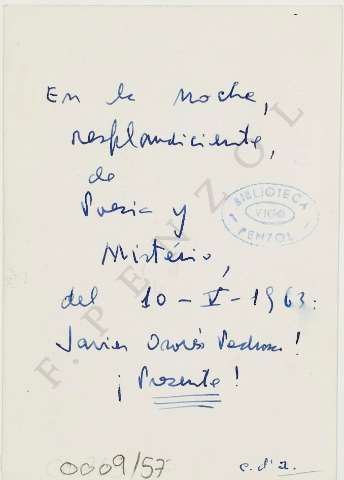 En la noche,
resplandiciente,
de
Poesia y
Mistério,
del 10-V-1963:
Javier Pedrosa!
¡Presente!
BIBLIOTECA
VIGO
PENZOL
F. PENZOL
0009/57
c.d'a.